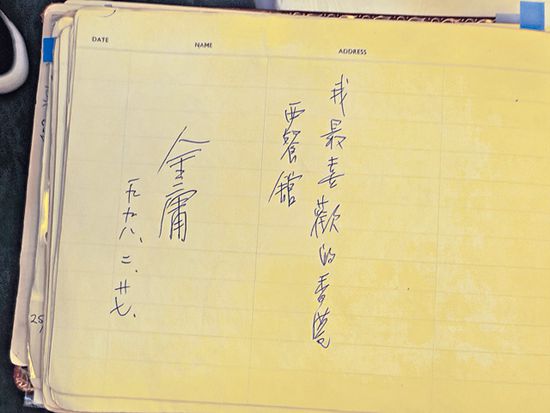 DATE NAME ADDRESS
我最喜歡的香港
西餐館
金庸
一九九八、二、廿七、